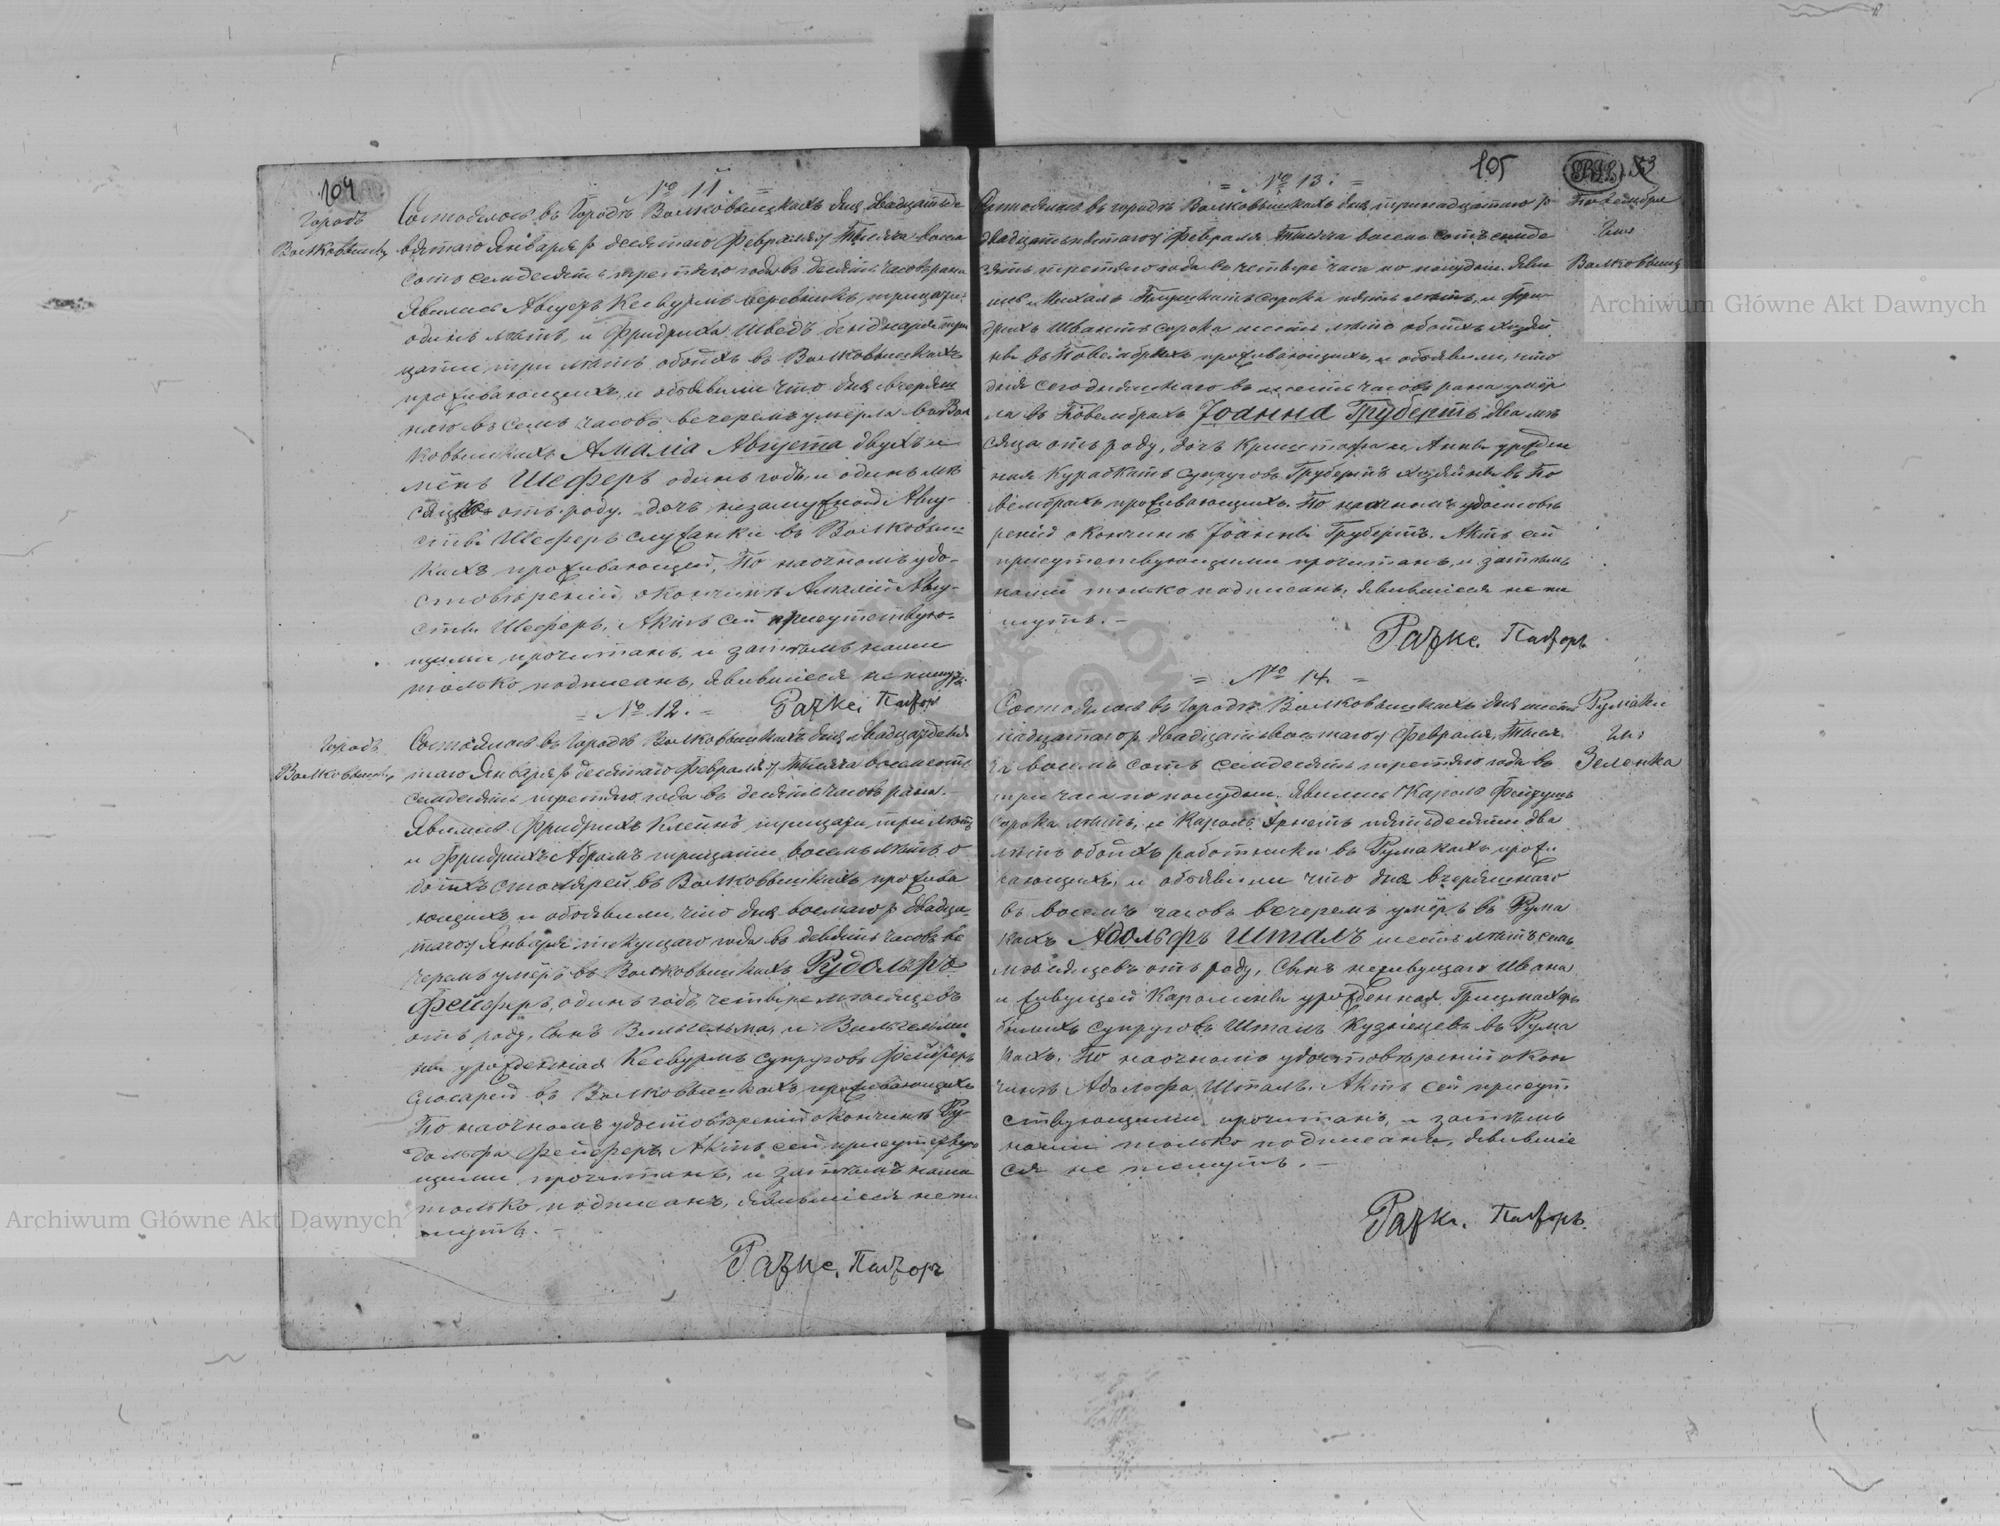 104
№ 11.
Городъ
Волковышки
Состоялось въ Городѣ Волковышкахъ дня двадцать де
вятаго Января / десятаго Февраля / Тысяча восем
сотъ семдесятъ третьяго года въ десять часовъ рана
Явились Августъ Кесвурмъ веревникъ, трицати
одинъ лѣтъ, и Фридрихъ Шведъ бенднаръ три
цати три лѣтъ обоихъ въ Волковышкахъ
проживающихъ, и объявили что дня вчерашн
наго въ семь часовъ вечеромъ умерла въ Вол
ковышкахъ Амалія Августа двухъ и
мѣнъ Шеферъ одинъ годъ, и одинъ мѣ
сяцъ отъ роду. дочь незамужной Авгу-
сты Шеферъ служанки въ Волковыш-
кахъ проживающей, По наочномъ удо-
стовѣреніи о кончинѣ Амаліи Авгу-
сты Шеферъ, Актъ сей присутствую-
щими прочитанъ, и затѣмъ нами
только подписанъ, явившіеся не пишутъ.
Ражке, Пасторъ
№ 12.
Городъ
Волковышки
Состоялось въ Городѣ Волковышкахъ дня двадцать девя
таго Января / десятаго Февраля / Тысяча восемсотъ
семдесятъ третьяго года въ десять часовъ рана.
Явились Фридрихъ Клейнъ трицати три лѣтъ
и Фридрихъ Абрамъ трицати восемь лѣтъ о
боихъ столярей въ Волковышкахъ прожива
ющихъ и объявили, что дня восмаго / двадца-
таго / Января текущаго года въ девять часовъ ве
черемъ умеръ въ Волковышкахъ Рудольфъ
Фейферъ, одинъ годъ четыре мѣсяцевъ
отъ роду, сынъ Вильгельма, и Вильгельми
ны урожденная Кесвурмъ супруговъ Фейферъ
слюсарей въ Волковышкахъ проживающихъ
По наочномъ удостовѣреніи о кончинѣ Ру-
дольфа Фейферъ, Актъ сей присутствую
щими прочитанъ, и затѣмъ нами
только подписанъ, явившіеся не пи
шутъ.
Ражке, Пасторъ
105
83
№ 13.
Повембры
Волковышк
Состоялось въ городѣ Волковышкахъ дня тринадцатаго /
двадцать пятаго / Февраля Тысяча восемь сотъ семде
сятъ третьяго года въ четыре часа по полудни. Яви
лись Михалъ сорока пять лѣтъ, и Фри-
дрихъ сорока шесть лѣтъ обоихъ хозяй
ны въ Повембрахъ проживающихъ, и объявили, что
дня сегодняшнаго въ шесть часовъ рана умер
ла въ Повембрахъ Іоанна Грубертъ два мѣ
сяца отъ роду, дочь Криштофа и Анны урожден
ная Курапкатъ супруговъ Грубертъ хозяйны въ По
вембрахъ проживающихъ. По наочномъ удостовѣ
реніи о кончинѣ Іоанны Грубертъ. Актъ сей
присутствующими прочитанъ, и затѣмъ
нами только подписанъ, явившіеся не пи
шутъ.
Ражке, Пасторъ
№ 14.
Румаки
Зеленка
Состоялось въ Городѣ Волковышкахъ дня шест
надцатаго / двадцать восмаго / Февраля, Тыся
ча восемь сотъ семдесятъ третьяго года въ
три часа по полудни. Явились Кароль
сорока лѣтъ, и Кароль Эрнстъ пятьдесяти два
лѣтъ обоихъ работники въ Румакахъ прожи
вающихъ, и объявили что дня вчерашнаго
въ восемь часовъ вечеремъ умеръ въ Рума
кахъ Адольфъ Шталъ шесть лѣтъ семь
мѣсяцевъ отъ роду, Сынъ неживущаго Ивана
и живущей Каролины урожденная Грицмахеръ
бывшихъ супруговъ Шталъ Кузнецевъ въ Рума
кахъ. По наочномъ удостовѣреніи о кон
чинѣ Адольфа Шталъ. Актъ сей присут
ствующими прочитанъ, и затѣмъ
нами только подписанъ, явившіе
ся не пишутъ.
Ражке, Пасторъ.
Archiwum Główne Akt Dawnych
Archiwum Główne Akt Dawnych